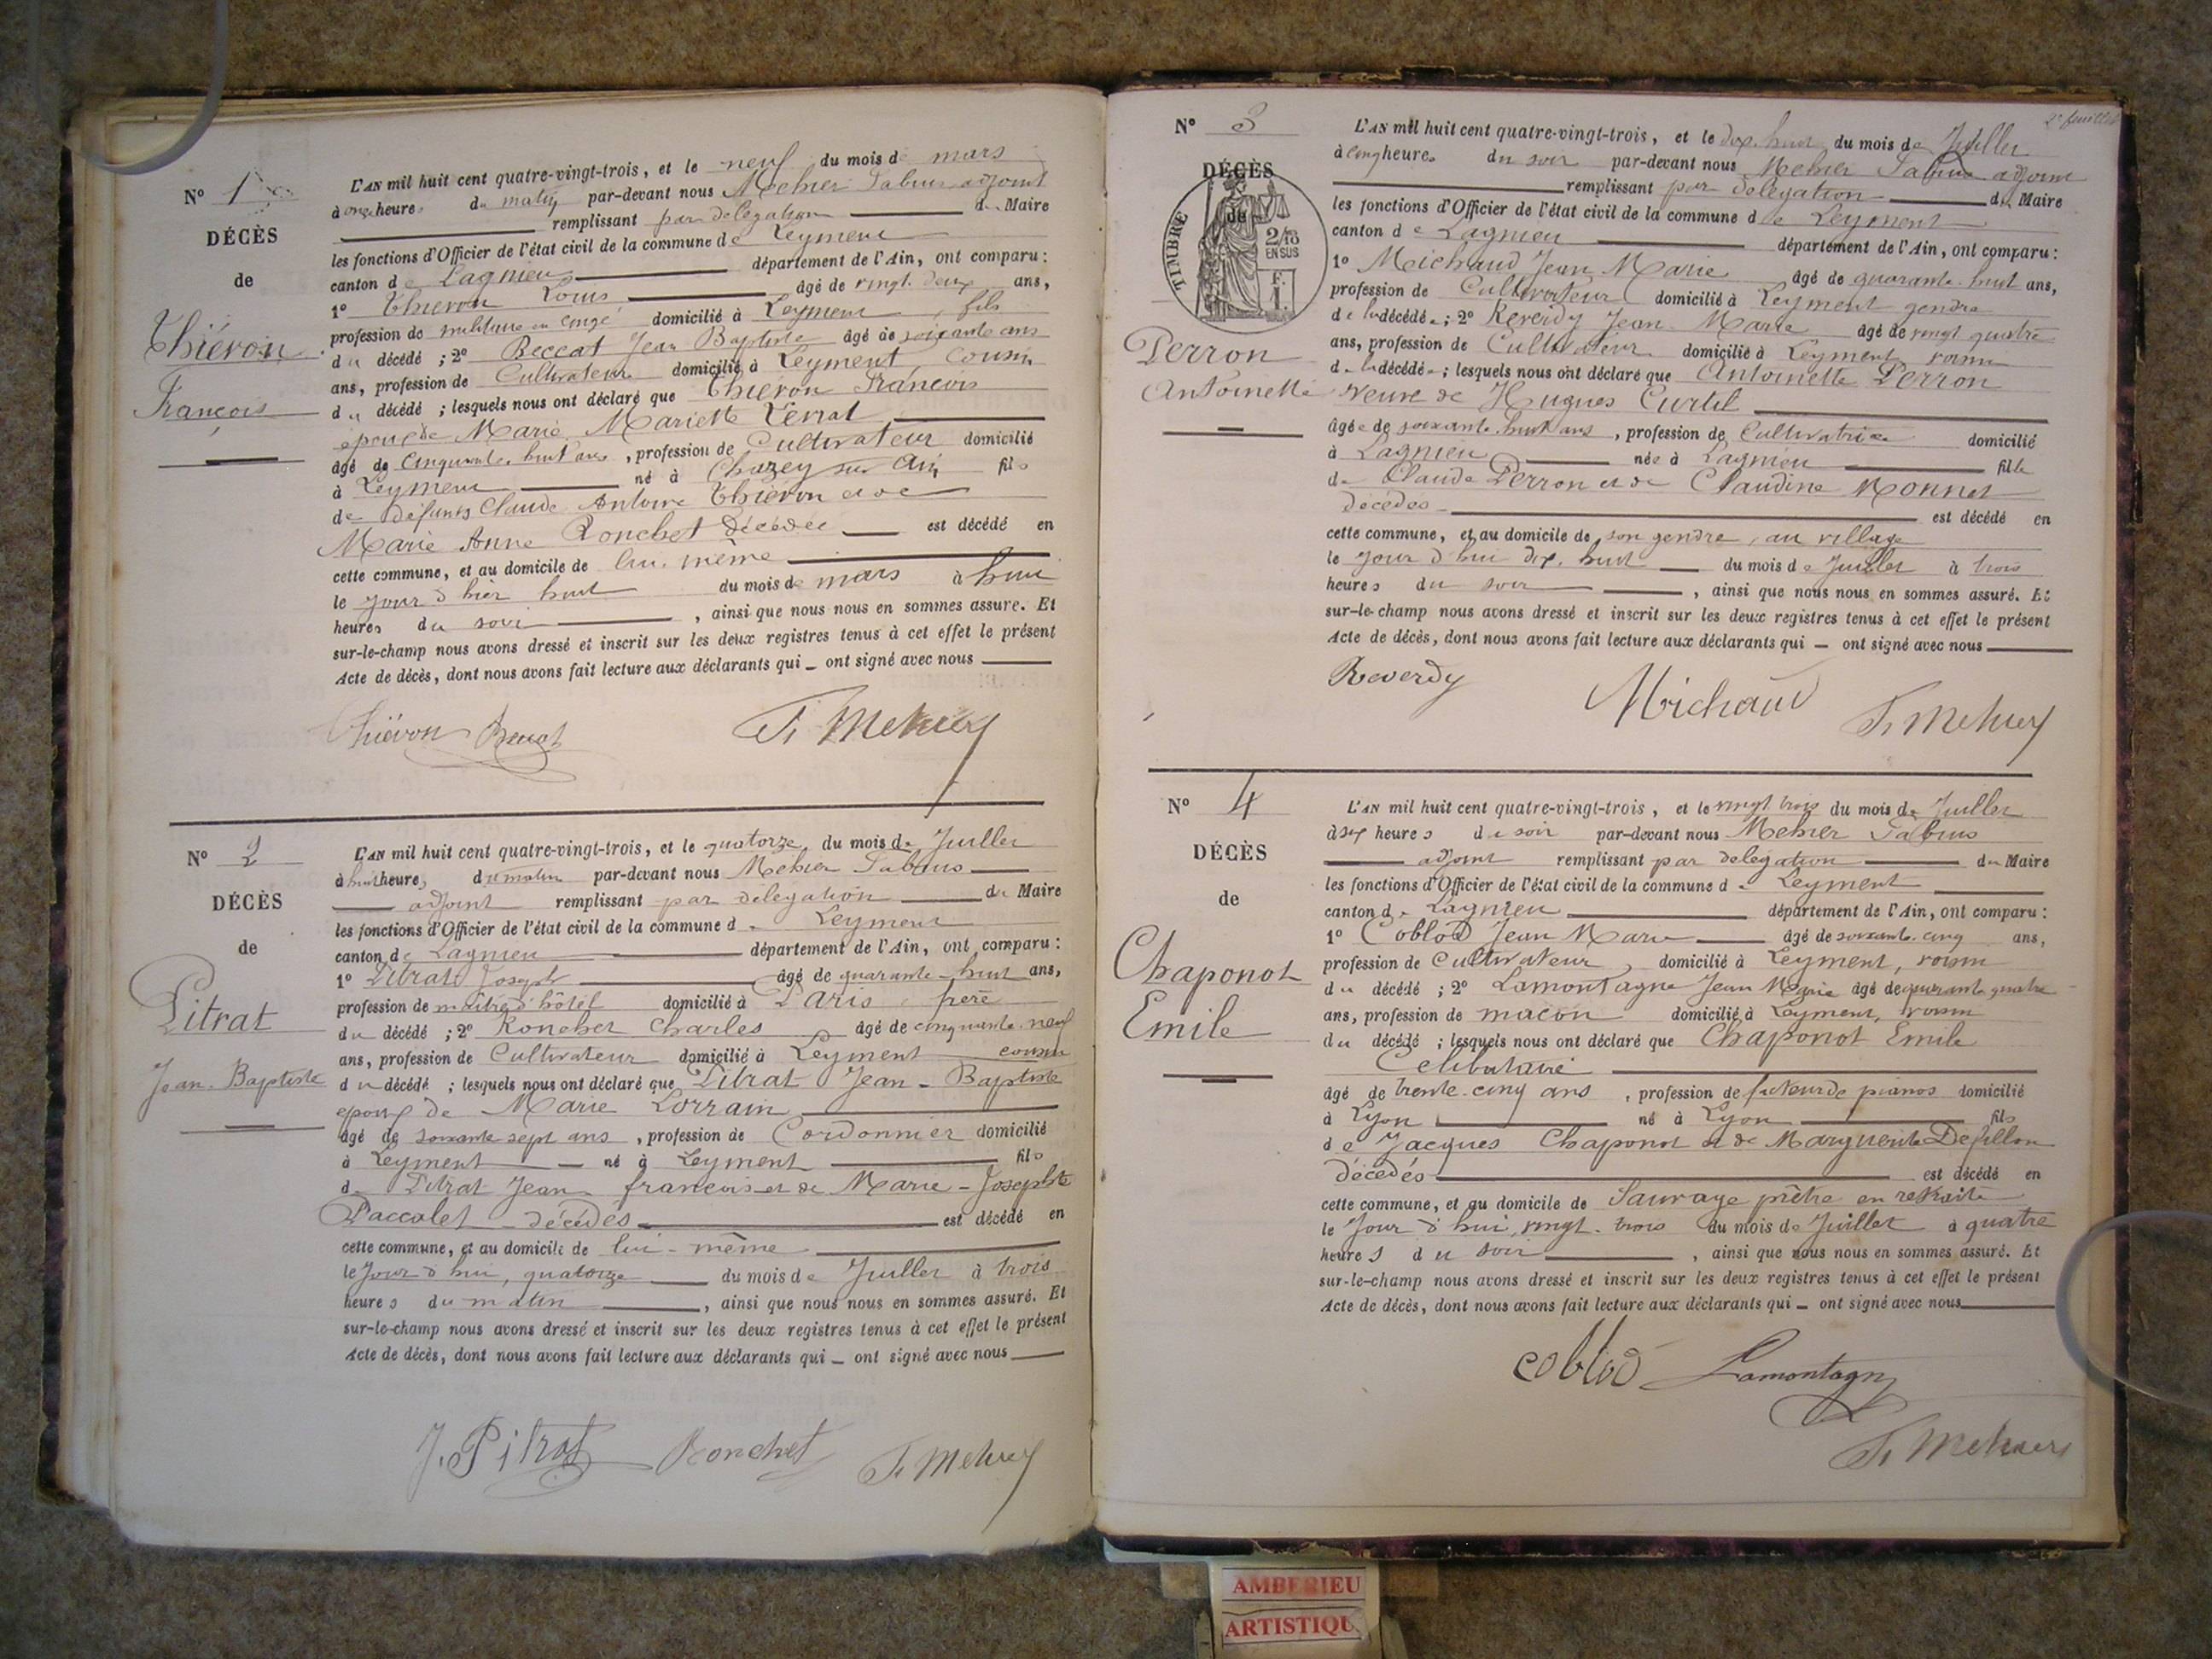 N° 1
DÉCÈS
de
Thiévon
François
L'AN mil huit cent quatre-vingt-trois, et le neuf du mois de mars
à onze heures du matin par-devant nous Mehier Fabius adjoint
remplissant par délégation du Maire
les fonctions d'Officier de l'état civil de la commune de Leyment
canton de Lagnieu département de l'Ain, ont comparu :
1° Thiévon Louis âgé de vingt-deux ans,
profession de militaire en congé domicilié à Leyment, fils
du décédé ; 2° Beccat Jean Baptiste âgé de soixante ans
ans, profession de Cultivateur domicilié à Leyment Cousin
du décédé ; lesquels nous ont déclaré que Thiévon François
époux de Marie Mariette
âgé de Cinquante-huit ans, profession de Cultivateur domicilié
à Leyment né à Chazey sur Ain fils
de défunts Claude Antoine Thiévon et de
Marie Anne Ronchet décédée est décédé en
cette commune, et au domicile de lui-même
le jour d'hier huit du mois de mars à huit
heures du soir, ainsi que nous nous en sommes assuré. Et
sur-le-champ nous avons dressé et inscrit sur les deux registres tenus à cet effet le présent
Acte de décès, dont nous avons fait lecture aux déclarants qui _ ont signé avec nous
Thiévon F. Mehier
N° 2
DÉCÈS
de
Pitrat
Jean-Baptiste
L'AN mil huit cent quatre-vingt-trois, et le quatorze du mois de Juillet
à huit heures du matin par-devant nous Mehier Fabius
adjoint remplissant par délégation du Maire
les fonctions d'Officier de l'état civil de la commune de Leyment
canton de Lagnieu département de l'Ain, ont comparu :
1° Pitrat Joseph âgé de quarante-huit ans,
profession de maître d'hôtel domicilié à Paris frère
du décédé ; 2° Ronchet Charles âgé de cinquante-neuf
ans, profession de Cultivateur domicilié à Leyment cousin
du décédé ; lesquels nous ont déclaré que Pitrat Jean-Baptiste
époux de Marie Lorrain
âgé de soixante sept ans, profession de Cordonnier domicilié
à Leyment né à Leyment fils
de Pitrat Jean françois et de Marie-Josephte
Paccalet décédés est décédé en
cette commune, et au domicile de lui-même
le Jour d'hui, quatorze du mois de Juillet à trois
heures du matin, ainsi que nous nous en sommes assuré. Et
sur-le-champ nous avons dressé et inscrit sur les deux registres tenus à cet effet le présent
Acte de décès, dont nous avons fait lecture aux déclarants qui _ ont signé avec nous
J. Pitrat Ronchet F. Mehier
2e feuillet
N° 3
DÉCÈS
de
TIMBRE
2/10
EN SUS
F.
1.
Perron
Antoinette
L'AN mil huit cent quatre-vingt-trois, et le dix-huit du mois de Juillet
à cinq heures du soir par-devant nous Mehier Fabius adjoint
remplissant par délégation du Maire
les fonctions d'Officier de l'état civil de la commune de Leyment
canton de Lagnieu département de l'Ain, ont comparu :
1° Michaud Jean Marie âgé de quarante-huit ans,
profession de Cultivateur domicilié à Leyment gendre
de la décédée ; 2° Reverdy Jean-Marie âgé de vingt quatre
ans, profession de Cultivateur domicilié à Leyment voisin
de la décédée ; lesquels nous ont déclaré que Antoinette Perron
Veuve de Hugues Curtil
âgée de soixante-huit ans, profession de Cultivatrice domicilié
à Lagnieu née à Lagnieu fille
de Claude Perron et de Claudine Monnet
décédés est décédé en
cette commune, et au domicile de son gendre, au village
le jour d'hui dix-huit du mois de Juillet à trois
heures du soir, ainsi que nous nous en sommes assuré. Et
sur-le-champ nous avons dressé et inscrit sur les deux registres tenus à cet effet le présent
Acte de décès, dont nous avons fait lecture aux déclarants qui _ ont signé avec nous
Reverdy Michaud F. Mehier
N° 4
DÉCÈS
de
Chaponot
Emile
L'AN mil huit cent quatre-vingt-trois, et le vingt trois du mois de Juillet
à six heures du soir par-devant nous Mehier Fabius
adjoint remplissant par délégation du Maire
les fonctions d'Officier de l'état civil de la commune de Leyment
canton de Lagnieu département de l'Ain, ont comparu :
1° Coblod Jean Marie âgé de soixante-cinq ans,
profession de Cultivateur domicilié à Leyment, voisin
du décédé ; 2° Lamontagne Jean Marie âgé de quarante quatre
ans, profession de maçon domicilié à Leyment, voisin
du décédé ; lesquels nous ont déclaré que Chaponot Emile
Célibataire
âgé de trente-cinq ans, profession de facteur de pianos domicilié
à Lyon né à Lyon fils
de Jacques Chaponot et de Marguerite
décédés est décédé en
cette commune, et au domicile de Sauvage prêtre en retraite
le Jour d'hui, vingt-trois du mois de Juillet à quatre
heures du soir, ainsi que nous nous en sommes assuré. Et
sur-le-champ nous avons dressé et inscrit sur les deux registres tenus à cet effet le présent
Acte de décès, dont nous avons fait lecture aux déclarants qui _ ont signé avec nous
coblod Lamontagne
F. Mehier
AMBERIEU
ARTISTIQU